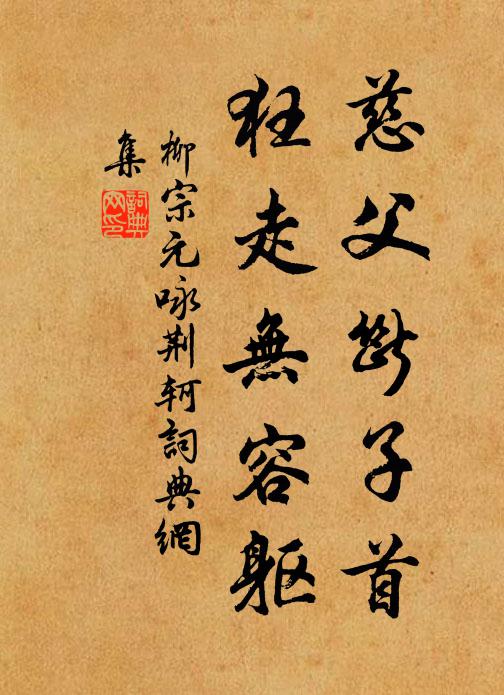 慈父斷子首
狂走無容軀
柳宗元詠荆軻詞典網
集
詞典
网印